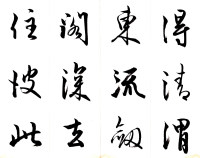 得清渭
東流劒
閣深去
住彼此